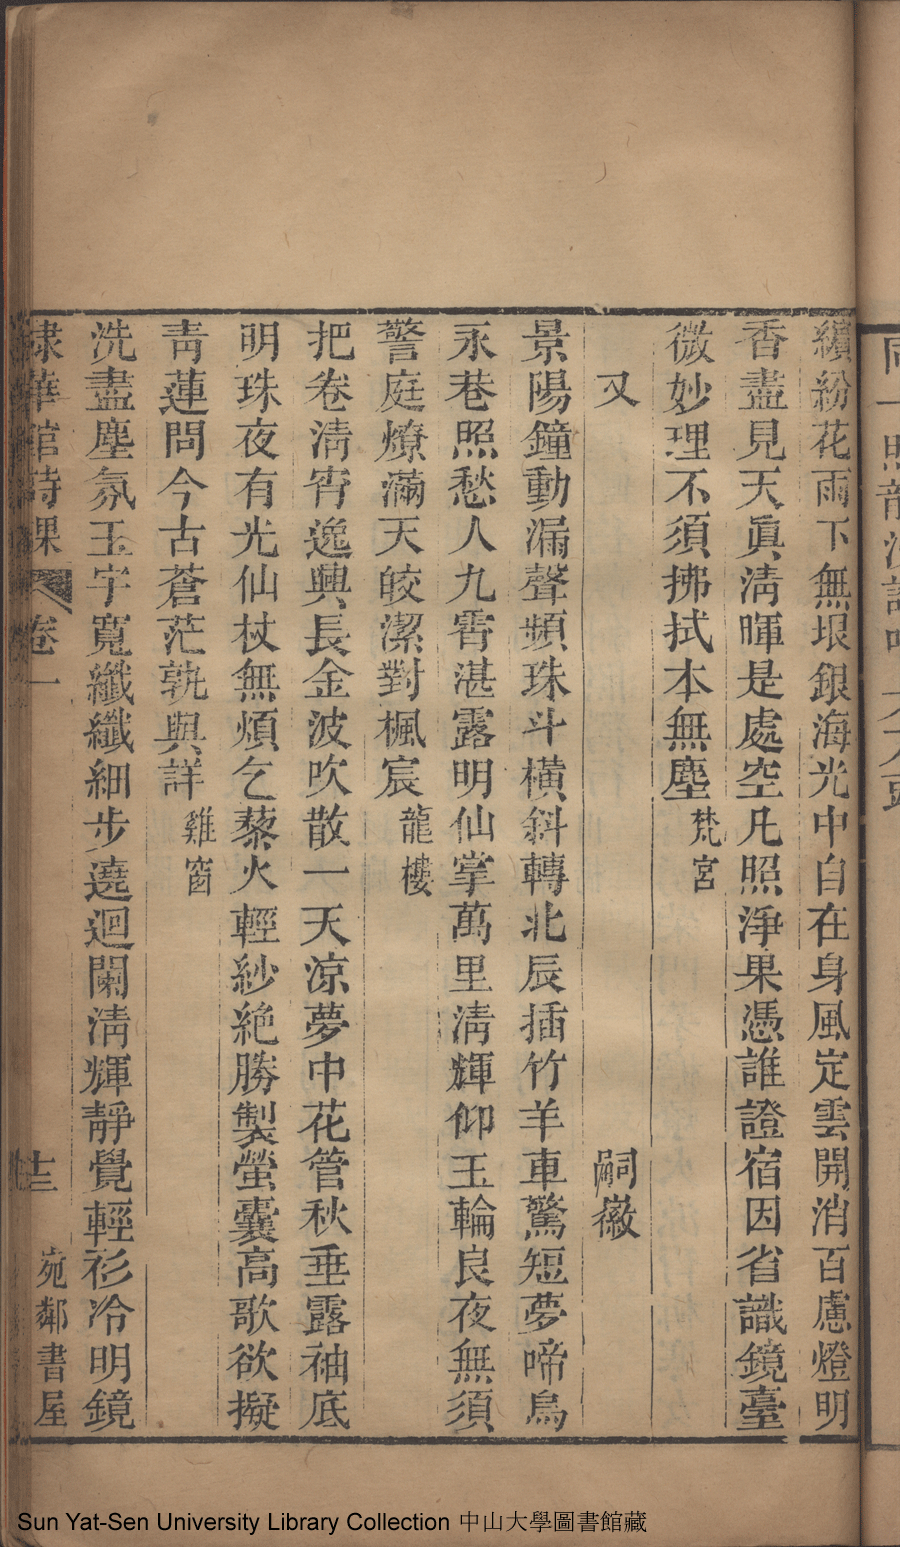 繽紛花雨下無垠銀海光中自在身風定雲開消百慮燈明
香盡見天眞淸暉是處空凡照淨果憑誰證宿因省識鏡臺
微妙理不須拂拭本無塵梵宮
又 嗣徽
景陽鐘動漏聲頻珠斗橫斜轉北辰插竹羊車驚短夢啼烏
永巷照愁人九霄湛露明仙掌萬里淸輝仰玉輪良夜無須
警庭燎滿天皎潔對楓宸龍樓
把卷淸宵逸興長金波吹散一天涼夢中花管秋垂露袖底
明珠夜有光仙杖無煩乞藜火輕紗絶勝製螢囊高歌欲擬
靑蓮問今古蒼茫孰與詳雞窗
洗盡塵氛玉宇寬纖纖細步遶迴闌淸輝靜覺輕衫冷明鏡
棣華館詩課 卷一 十三 宛鄰書屋
Sun Yat-Sen University Library Collection 中山大學圖書館藏